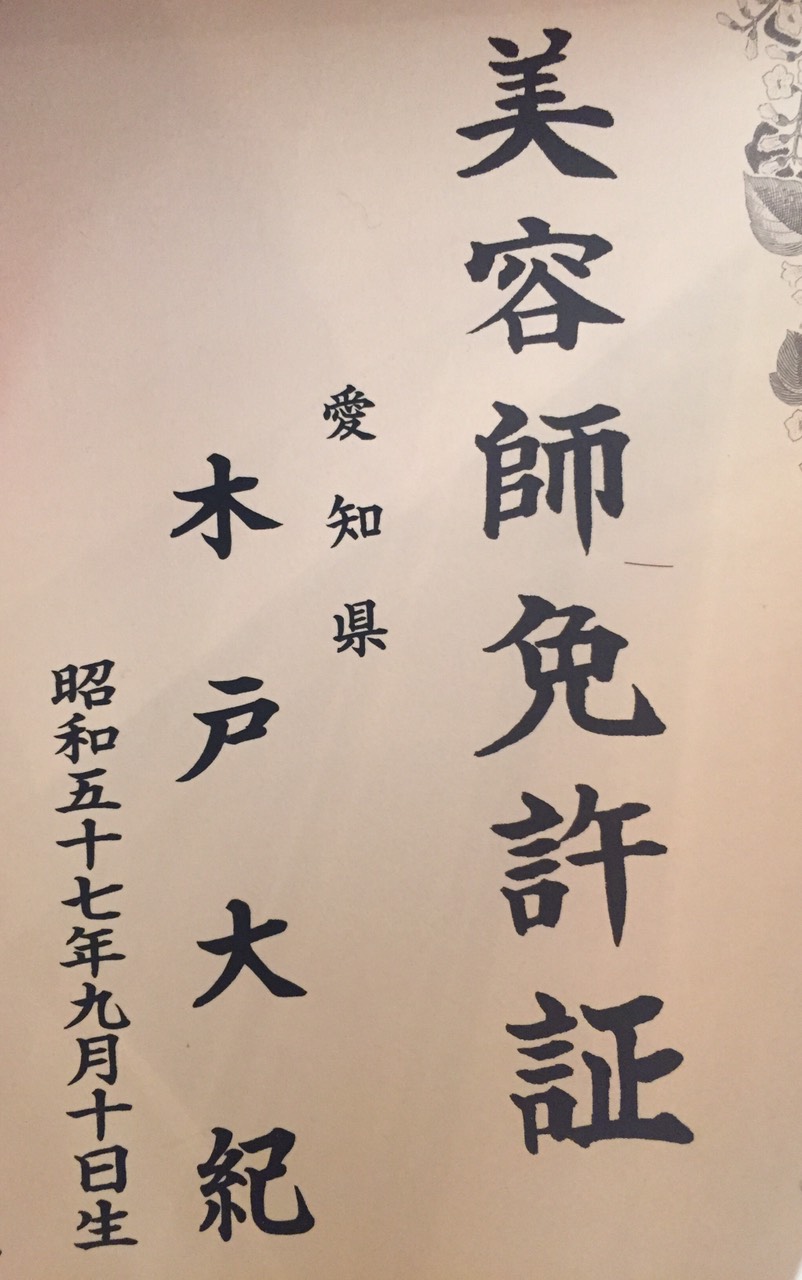 美容師免許証
愛知県
木戸大紀
昭和五十七年九月十日生